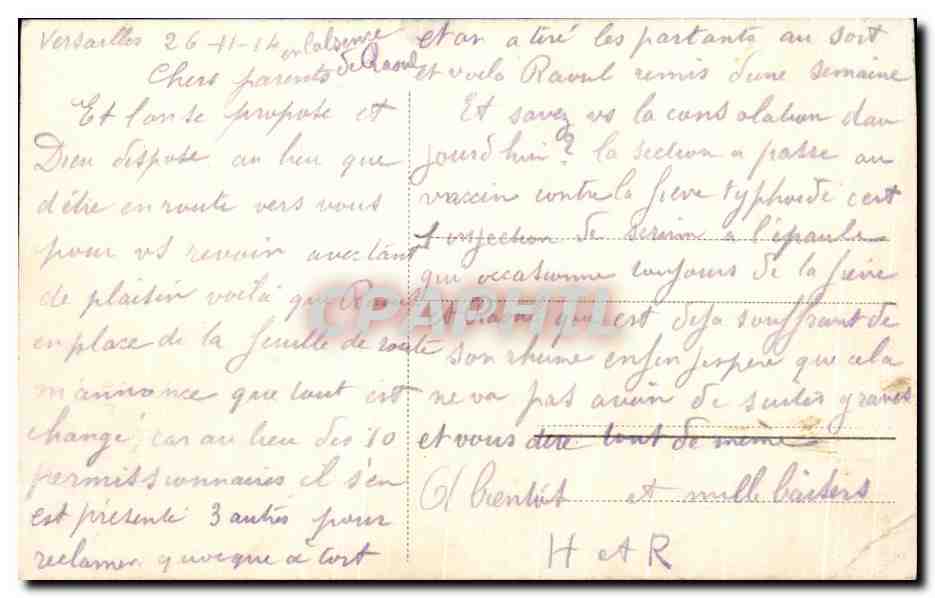 Versailles 26-11-14 en l'absence
de Raoul
Chers parents
Et l'on se propose et
Dieu dispose au lieu que
d'être en route vers vous
pour vs revoir avec tant
de plaisir voilà que Raoul
en place de la feuille de route
m'annonce que tout est
changé, car au lieu des 10
permissionnaires il s'en
est présenté 3 autres pour
reclamer quoique à tort
et on a tiré les partants au sort
et voila Raoul remis d'une semaine
Et savez vs la consolation d'au
jourd'hui? la section a passé au
vaccin contre la fièvre typhoïde c'est
1 injection de serum à l'épaule
qui occasionne toujours de la fièvre
et Raoul qui est deja souffrant de
son rhume enfin j'espère que cela
ne va pas avoir de suites graves
et vous dire tout de même
A bientôt et mille baisers
H et R
CPAPHIL